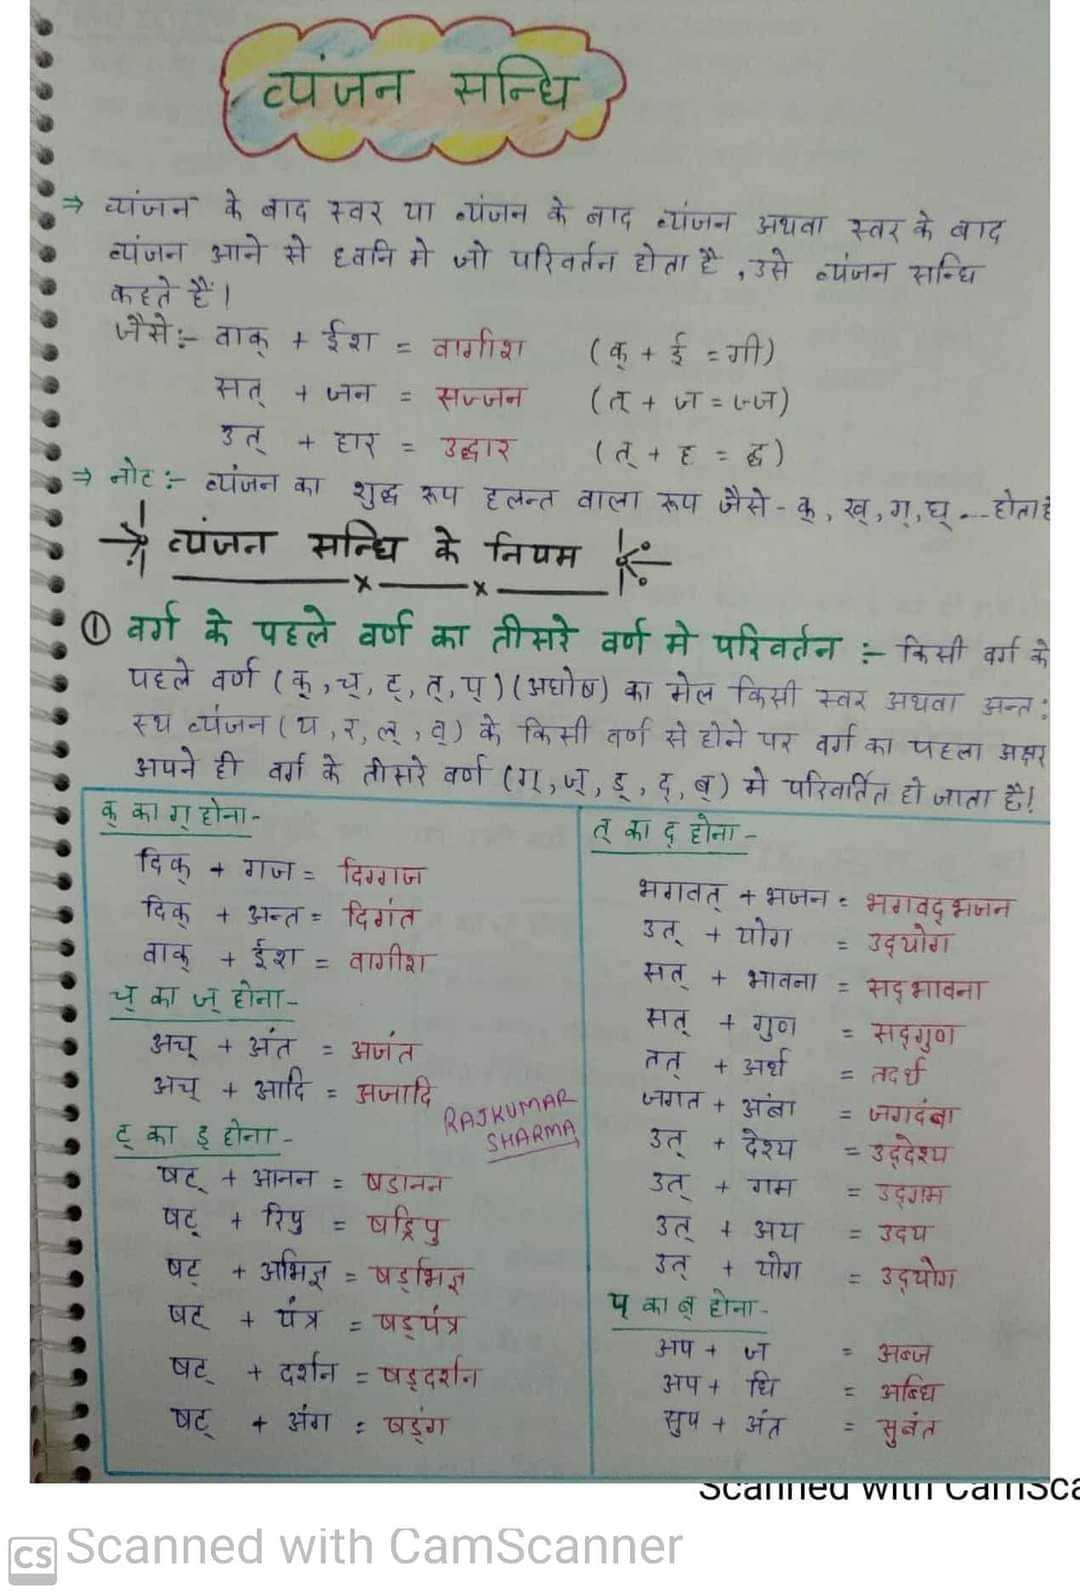 व्यंजन सन्धि
⇒ व्यंजन के बाद स्वर या व्यंजन के बाद व्यंजन अथवा स्वर के बाद
व्यंजन आने से ध्वनि मे जो परिवर्तन होता है , उसे व्यंजन सन्धि
कहते हैं।
जैसे:- वाक् + ईश = वागीश (क् + ई = गी)
सत् + जन = सज्जन (त् + ज = ज्ज)
उत् + हार = उद्धार (त् + ह = द्ध)
⇒ नोट :- व्यंजन का शुद्ध रूप हलन्त वाला रूप जैसे - क्, ख्, ग्, घ् ... होता है
व्यंजन सन्धि के नियम
① वर्ग के पहले वर्ण का तीसरे वर्ण मे परिवर्तन :- किसी वर्ग के
पहले वर्ण (क्, च्, ट्, त्, प्) (अघोष) का मेल किसी स्वर अथवा अन्त:
स्थ व्यंजन (य, र, ल्, व्) के किसी वर्ण से होने पर वर्ग का पहला अक्षर
अपने ही वर्ग के तीसरे वर्ण (ग्, ज्, ड्, द्, ब्) मे परिवर्तित हो जाता है!
क् का ग् होना-
दिक् + गज = दिग्गज
दिक् + अन्त = दिगंत
वाक् + ईश = वागीश
च् का ज् होना-
अच् + अंत = अजंत
अच् + आदि = अजादि
RAJKUMAR
SHARMA
ट् का ड् होना -
षट् + आनन = षडानन
षट् + रिपु = षड्रिपु
षट् + अभिज्ञ = षड्भिज्ञ
षट् + यंत्र = षड्यंत्र
षट् + दर्शन = षड्दर्शन
षट् + अंग = षड्ंग
त् का द् होना -
भगवत् + भजन = भगवद्भजन
उत् + योग = उद्योग
सत् + भावना = सद्भावना
सत् + गुण = सद्गुण
तत् + अर्थ = तदर्थ
जगत + अंबा = जगदंबा
उत् + देश्य = उद्देश्य
उत् + गम = उद्गम
उत् + अय = उदय
उत् + योग = उद्योग
प् का ब् होना -
अप + ज = अब्ज
अप + धि = अब्धि
सुप + अंत = सुबंत
Scanned with CamSca
CS Scanned with CamScanner